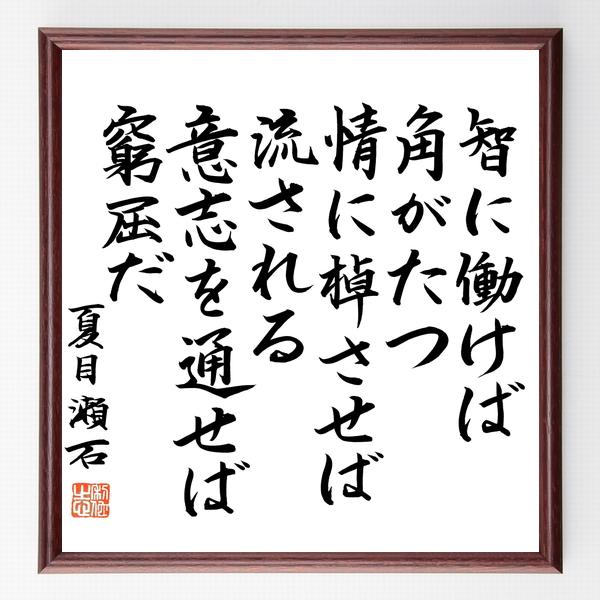 智に働けば
角がたつ
情に棹させば
流される
意志を通せば
窮屈だ
夏目瀬石